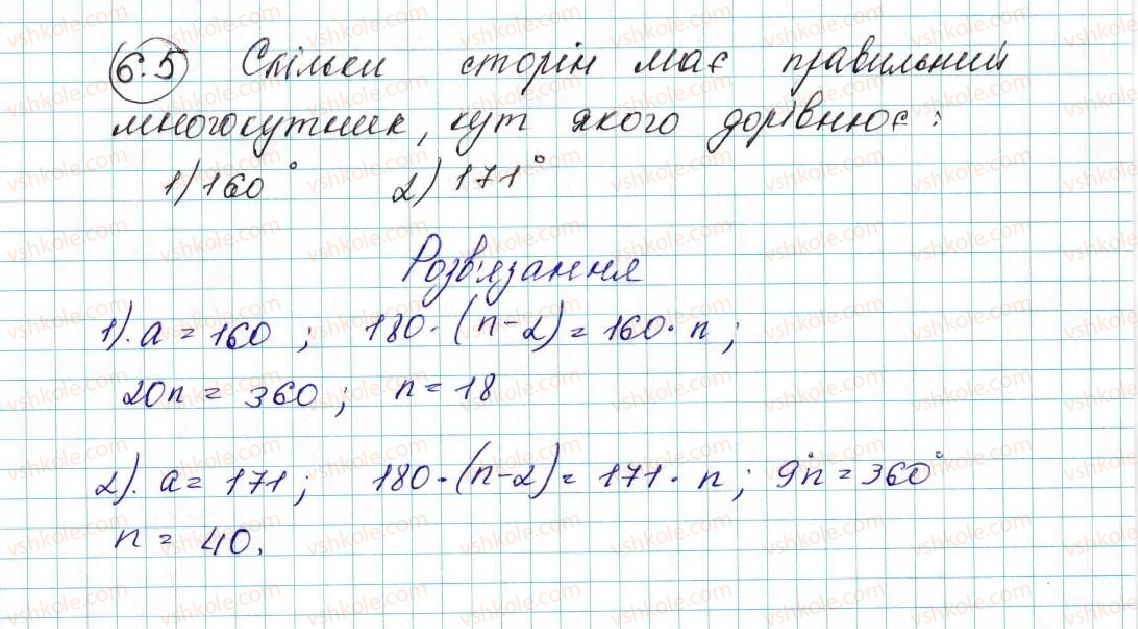 6.5 Скільки сторін має правильний
многокутник, кут якого дорівнює:
1) 160° 2) 171°
Розв'язання
1). a = 160 ; 180·(n-2) = 160·n ;
20n = 360 ; n = 18
2). a = 171 ; 180·(n-2) = 171·n ; 9°n = 360°
n = 40.